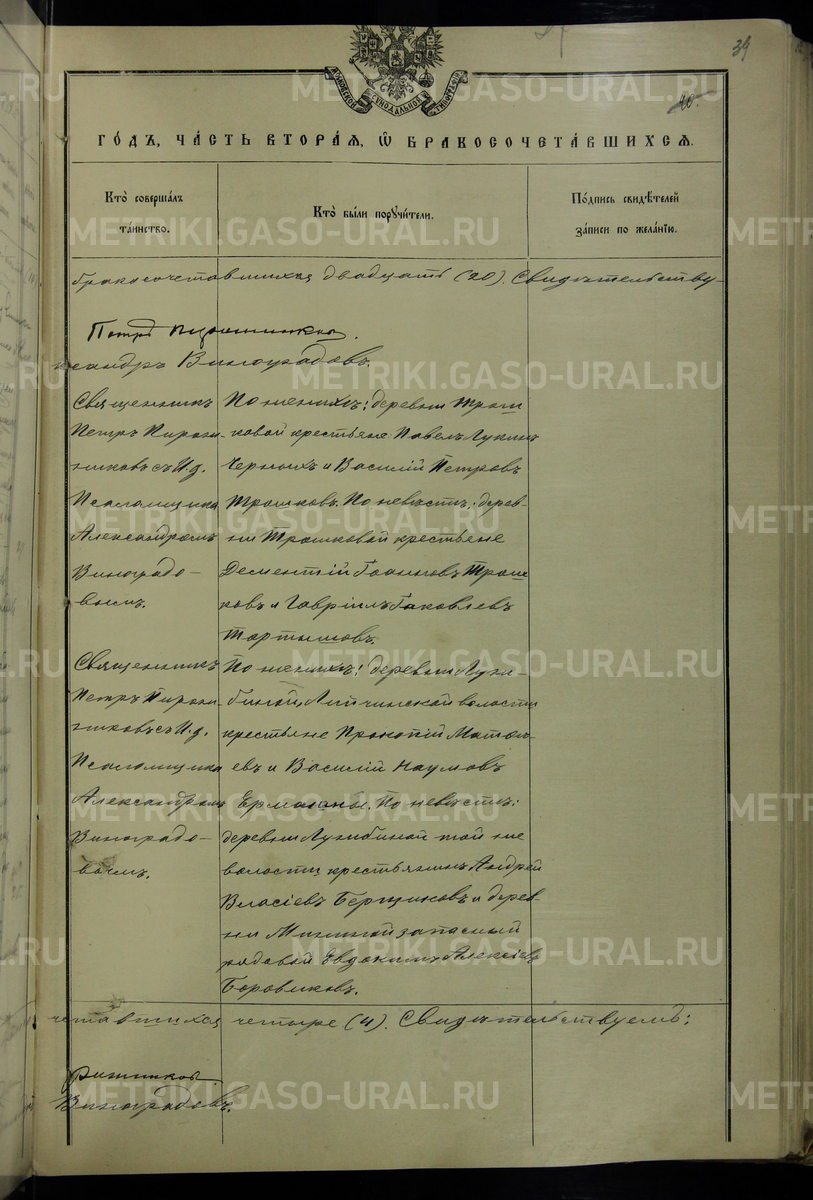 39
40.
МОСКОВСКОЙ СѴНОДАЛЬНОЙ ТИПОГРАФІИ
ГО́ДЪ, ЧА́СТЬ ВТОРА́Я, Ѽ БРАКОСОЧЕТА́ВШИХСЯ.
Кто̀ совершалъ
таинство.
Кто̀ были порꙋчители.
Подпись свидѣтелей
записи по желанію.
бракосочетавшихся двадцать (20). Свидѣтельству-
Петръ
ксандръ Виноградовъ.
Священникъ
Петръ Пирож-
никовъ съ И.д.
Псаломщика
Александромъ
Виноградо-
вымъ.
По женихѣ: деревни Трош
ковой крестьяне Павелъ Лукинъ
Черныхъ и Василій Петровъ
Трошковъ. По невѣстѣ: дерев-
ни Трошковой крестьяне
Дементій Іоанновъ Трош
ковъ и Гавріилъ Іаковлевъ
Мартышовъ.
Священникъ
Петръ Пирож-
никовъ съ И.д.
Псаломщика
Александромъ
Виноградо-
вымъ.
По женихѣ: деревни Луки-
биной, Липчинской волости
крестьяне Прокопій Матѳ
евъ и Василій Наумовъ
Ермаковы. По невѣстѣ:
деревни Лукибиной той же
волости крестьянинъ Андрей
Власіевъ Берщиковъ и дерев-
ни запасный
рядовой Евдокимъ Алексіевъ
Боровиковъ.
четавшихся четыре (4). Свидѣтельствуемъ:
Виноградовъ.
METRIKI.GASO-URAL.RU